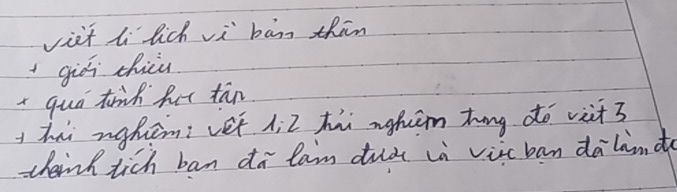 viết lí lịch vì bản thân
+ giới thiệu
+ quá trình học tân
+ trải nghiệm: viết 1,2 trải nghiệm trong đó viết 3
thành tích bạn đã làm được và việc bạn đã làm đc